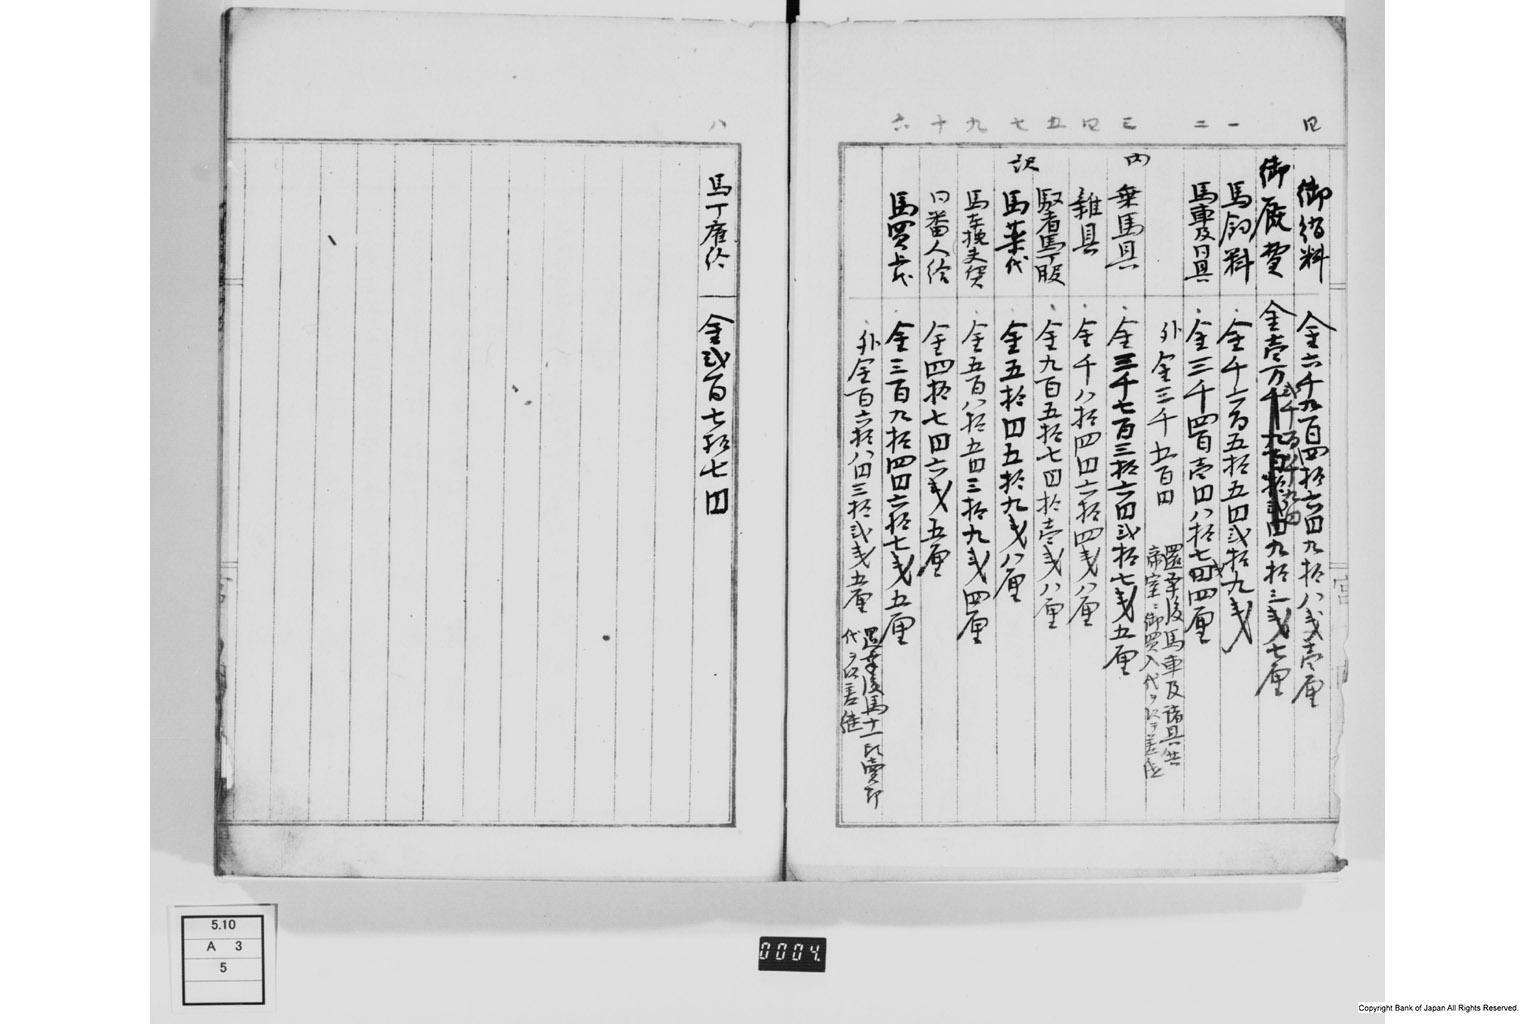 四
御賄料 金六千九百四拾六円九拾八戋壱厘
御厩費 金壱万
九拾三戋七厘
一
馬飼料 金千六百五拾五円弐拾九戋
二
馬車及日具 金三千四百壱円八拾七戋四厘
外金三千五百円
還幸後馬車及諸具共
帝室ニ御買入代ヲ以
三
内
乗馬具 金三千七百三拾六円弐拾七戋五厘
四
雑具 金千八拾四円六拾四戋八厘
五
馭者馬丁服 金九百五拾七円拾壱戋八厘
七
訳
馬薬代 金五拾四円五拾九戋八厘
九
金五百八拾五円三拾九戋四厘
十
日番人給 金四拾七円六戋五厘
六
馬買上代 金三百九拾四円六拾七戋五厘
外金百六拾八円三拾弐戋五厘
還幸後馬十一疋売却
代ヲ以
八
馬丁雇給 金弐百七拾七円
5.10
A 3
5
0004.
Copyright Bank of Japan All Rights Reserved.